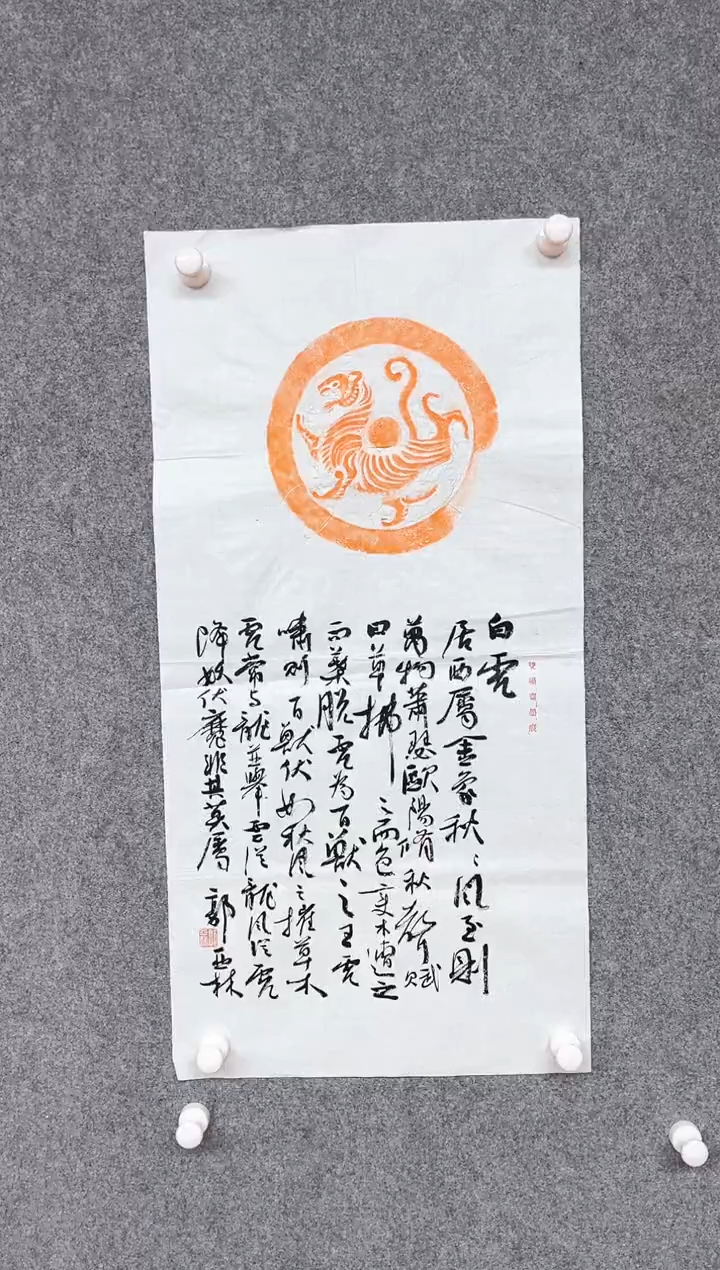 白虎
居西属金象秋秋風至則
萬物蕭瑟歐陽脩秋聲賦
曰草拂之而色変木遭之
而葉脱虎為百獣之王虎
嘯則百獣伏如秋風之摧草木
虎常与龍並舉雲従龍風従虎
降妖伏魔非其莫属
郭亚林